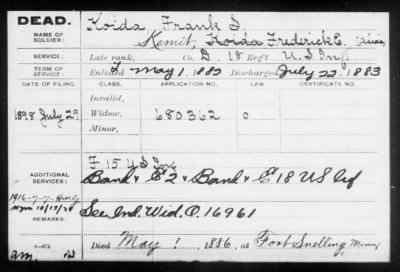 DEAD.
NAME OF SOLDIER:
Koida, Frank S.
Koida Frederick E.
SERVICE:
Late rank, Co. D, 18 Reg't U.S. Inf
TERM OF SERVICE:
Enlisted May 1, 1882 Discharged July 22, 1883
DATE OF FILING. CLASS. APPLICATION NO. LAW CERTIFICATE NO.
Invalid,
1898 July 29 Widow, 680362 0
Minor,
ADDITIONAL SERVICES:
F 15 U.S. Inf
Band & E 2 & Band & E 18 US Inf
1916-7-7
REMARKS:
See Ind. Wid. O. 16961
Died May ?, 1886, at Fort Snelling Minn